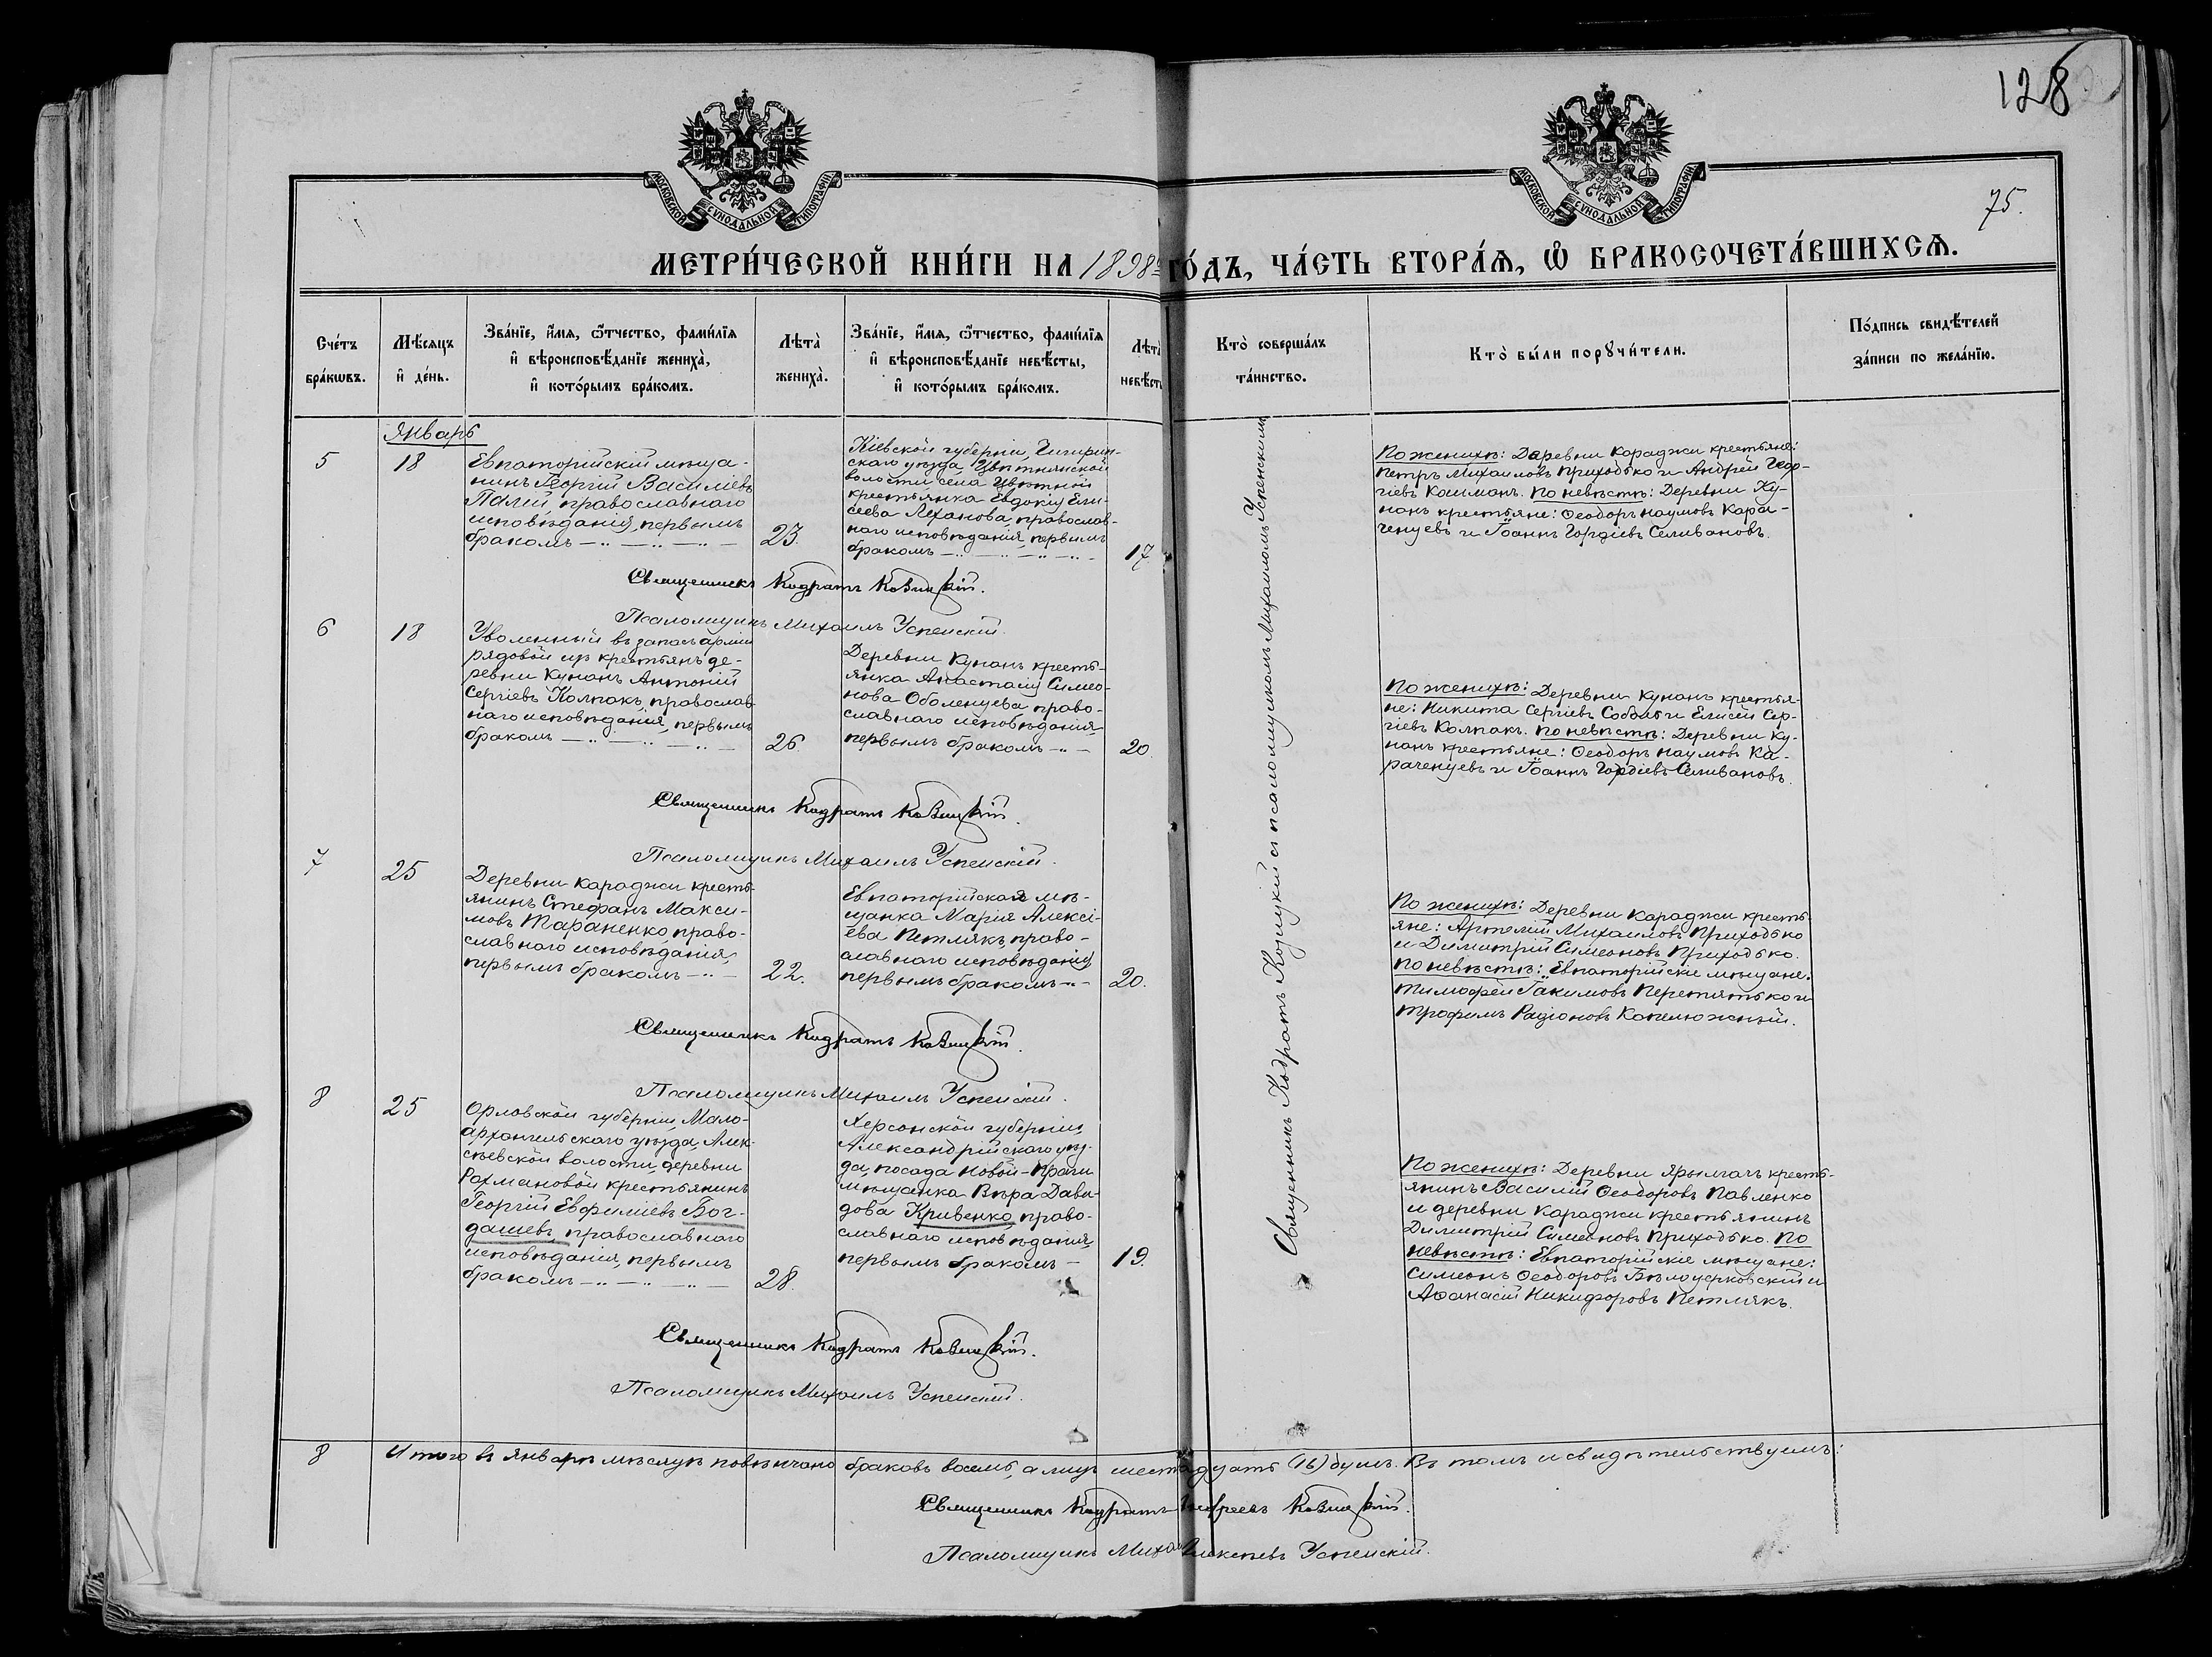 128
75.
МОСКОВСКОЙ СѴНОДАЛЬНОЙ ТИПОГРАФІИ
МОСКОВСКОЙ СѴНОДАЛЬНОЙ ТИПОГРАФІИ
МЕТРИ́ЧЕСКОЙ КНИ́ГИ НА 1898 ГО́ДЪ, ЧА́СТЬ ВТОРА́Я, Ѿ БРАКОСОЧЕТА́ВШИХСѦ.
Сче́тъ бра́кѡвъ.
Мѣ́сяцъ и҆ де́нь.
Зва́нїе, и҆́мѧ, ѻ҆́тчество, фами́лїя
и҆ вѣроисповѣ́данїе жениха̀,
и҆ кото́рымъ бра́комъ.
Лѣта̀ жениха̀.
Зва́нїе, и҆́мѧ, ѻ҆́тчество, фами́лїя
и҆ вѣроисповѣ́данїе невѣ́сты,
и҆ кото́рымъ бра́комъ.
Лѣта̀ невѣ́сты
Кто̀ соверша́лъ
та́инство.
Кто̀ бы́ли порꙋчи́тели.
По́дпись свидѣ́телей
за́писи по жела́нїю.
Январь
5
18
Евпаторійскій мѣща-
нинъ Георгій Василіевъ
Палій, православнаго
исповѣданія, первымъ
бракомъ
23.
Кіевской губерніи, Чигирин-
скаго уѣзда, Цвѣтнянской
волости, села Цвѣтной
крестьянка Евдокія Ели-
сеева Леханова, православ-
наго исповѣданія, первымъ
бракомъ
17.
По женихѣ: Деревни Караджи крестьяне:
Петръ Михаиловъ Приходько и Андрей Геор-
гіевъ Кошманъ. По невѣстѣ: Деревни Ку-
нанъ крестьяне: Ѳеодоръ Наумовъ Кара-
ченцевъ и Іоаннъ Гордіевъ Селивановъ.
Священникъ Кодратъ Козицкій.
Псаломщикъ Михаилъ Успенскій.
6
18
Уволенный въ запасъ арміи
рядовой изъ крестьянъ де-
ревни Кунанъ Антоній
Сергіевъ Колпакъ, православ-
наго исповѣданія, первымъ
бракомъ
26.
Деревни Кунанъ кресть-
янка Анастасія Симео-
нова Оболенцева, право-
славнаго исповѣданія,
первымъ бракомъ
20.
По женихѣ: Деревни Кунанъ крестья-
не: Никита Сергіевъ Соболь и Елисей Сер-
гіевъ Колпакъ. По невѣстѣ: Деревни Ку-
нанъ крестьяне: Ѳеодоръ Наумовъ Ка-
раченцевъ и Іоаннъ Гордіевъ Селивановъ.
Священникъ Кодратъ Козицкій.
Псаломщикъ Михаилъ Успенскій.
7
25
Деревни Караджи кресть-
янинъ Стефанъ Макси-
мовъ Тараненко, право-
славнаго исповѣданія,
первымъ бракомъ
22.
Евпаторійская мѣ-
щанка Марія Алексі-
ева Петлякъ, право-
славнаго исповѣданія
первымъ бракомъ
20.
По женихѣ: Деревни Караджи кресть-
яне: Артемій Михаиловъ Приходько
и Димитрій Симеоновъ Приходько.
По невѣстѣ: Евпаторійскіе мѣщане:
Тимофей Іакимовъ Перетятько и
Трофимъ Радіоновъ Капелюжный.
Священникъ Кодратъ Козицкій.
Псаломщикъ Михаилъ Успенскій.
8
25
Орловской губерніи, Мало-
архангельскаго уѣзда, Алек-
сѣевской волости, деревни
Рахмановой крестьянинъ
Георгій Евфиміевъ Бог-
дашевъ, православнаго
исповѣданія, первымъ
бракомъ
28.
Херсонской губерніи,
Александрійскаго уѣз-
да, посада Новой-Праги
мѣщанка Вѣра Дави-
дова Кривенко, право-
славнаго исповѣданія,
первымъ бракомъ
19.
По женихѣ: Деревни Ярылгачъ кресть-
янинъ Василій Ѳеодоровъ Павленко
и деревни Караджи крестьянинъ
Димитрій Симеоновъ Приходько. По
невѣстѣ: Евпаторійскіе мѣщане:
Симеонъ Ѳеодоровъ Бѣлоцерковскій и
Аѳанасій Никифоровъ Петлякъ.
Священникъ Кодратъ Козицкій.
Псаломщикъ Михаилъ Успенскій.
Священникъ Кодратъ Козицкій съ псаломщикомъ Михаиломъ Успенскимъ
8
Итого въ Январѣ мѣсяцѣ повѣнчано браковъ восемь, а лицъ шестнадцать (16) душъ. Въ томъ и свидѣтельствуемъ:
Священникъ Кодратъ Андреевъ Козицкій.
Псаломщикъ Михаилъ Алексѣевъ Успенскій.